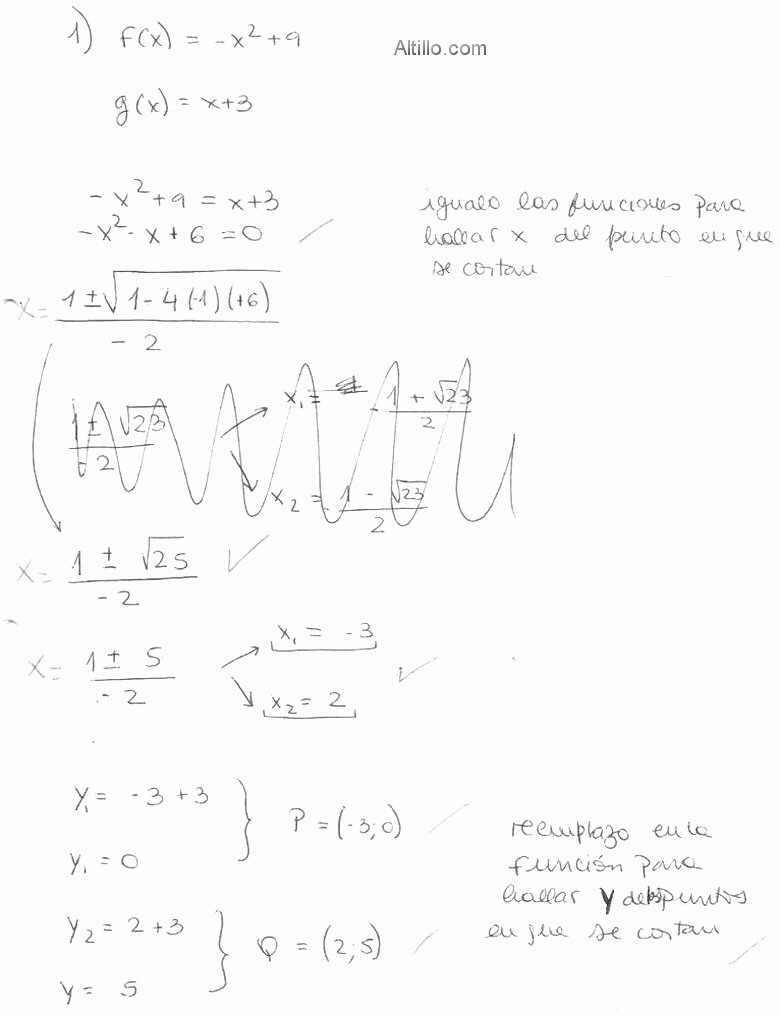 1) f(x) = -x² + 9
Altillo.com
g(x) = x+3
-x² + 9 = x+3
-x² - x + 6 = 0
igualo las funciones para
hallar x del punto en que
se cortan
x = (1 ± √(1 - 4(-1)(+6))) / -2
(1 ± √23) / -2
x₁ = - (1 + √23) / 2
x₂ = (1 - √23) / 2
x = (1 ± √25) / -2
x = (1 ± 5) / -2
x₁ = -3
x₂ = 2
y₁ = -3 + 3
y₁ = 0
P = (-3; 0)
reemplazo en la
función para
hallar y de los puntos
en que se cortan
y₂ = 2 + 3
y = 5
Q = (2; 5)